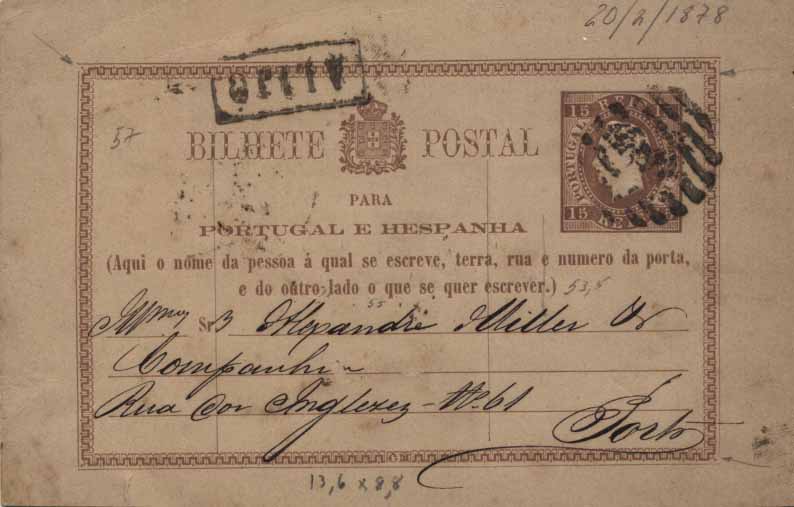 20/2/1878
57
BILHETE POSTAL
15 REIS
PORTUGAL
15 REIS
PARA
PORTUGAL E HESPANHA
(Aqui o nome da pessoa á qual se escreve, terra, rua e numero da porta,
e do outro lado o que se quer escrever.) 53,5
55
Illmos Srs Alexandre Miller &
Companhia
Rua dos Inglezes - No. 61
Porto
13,6 x 8,8